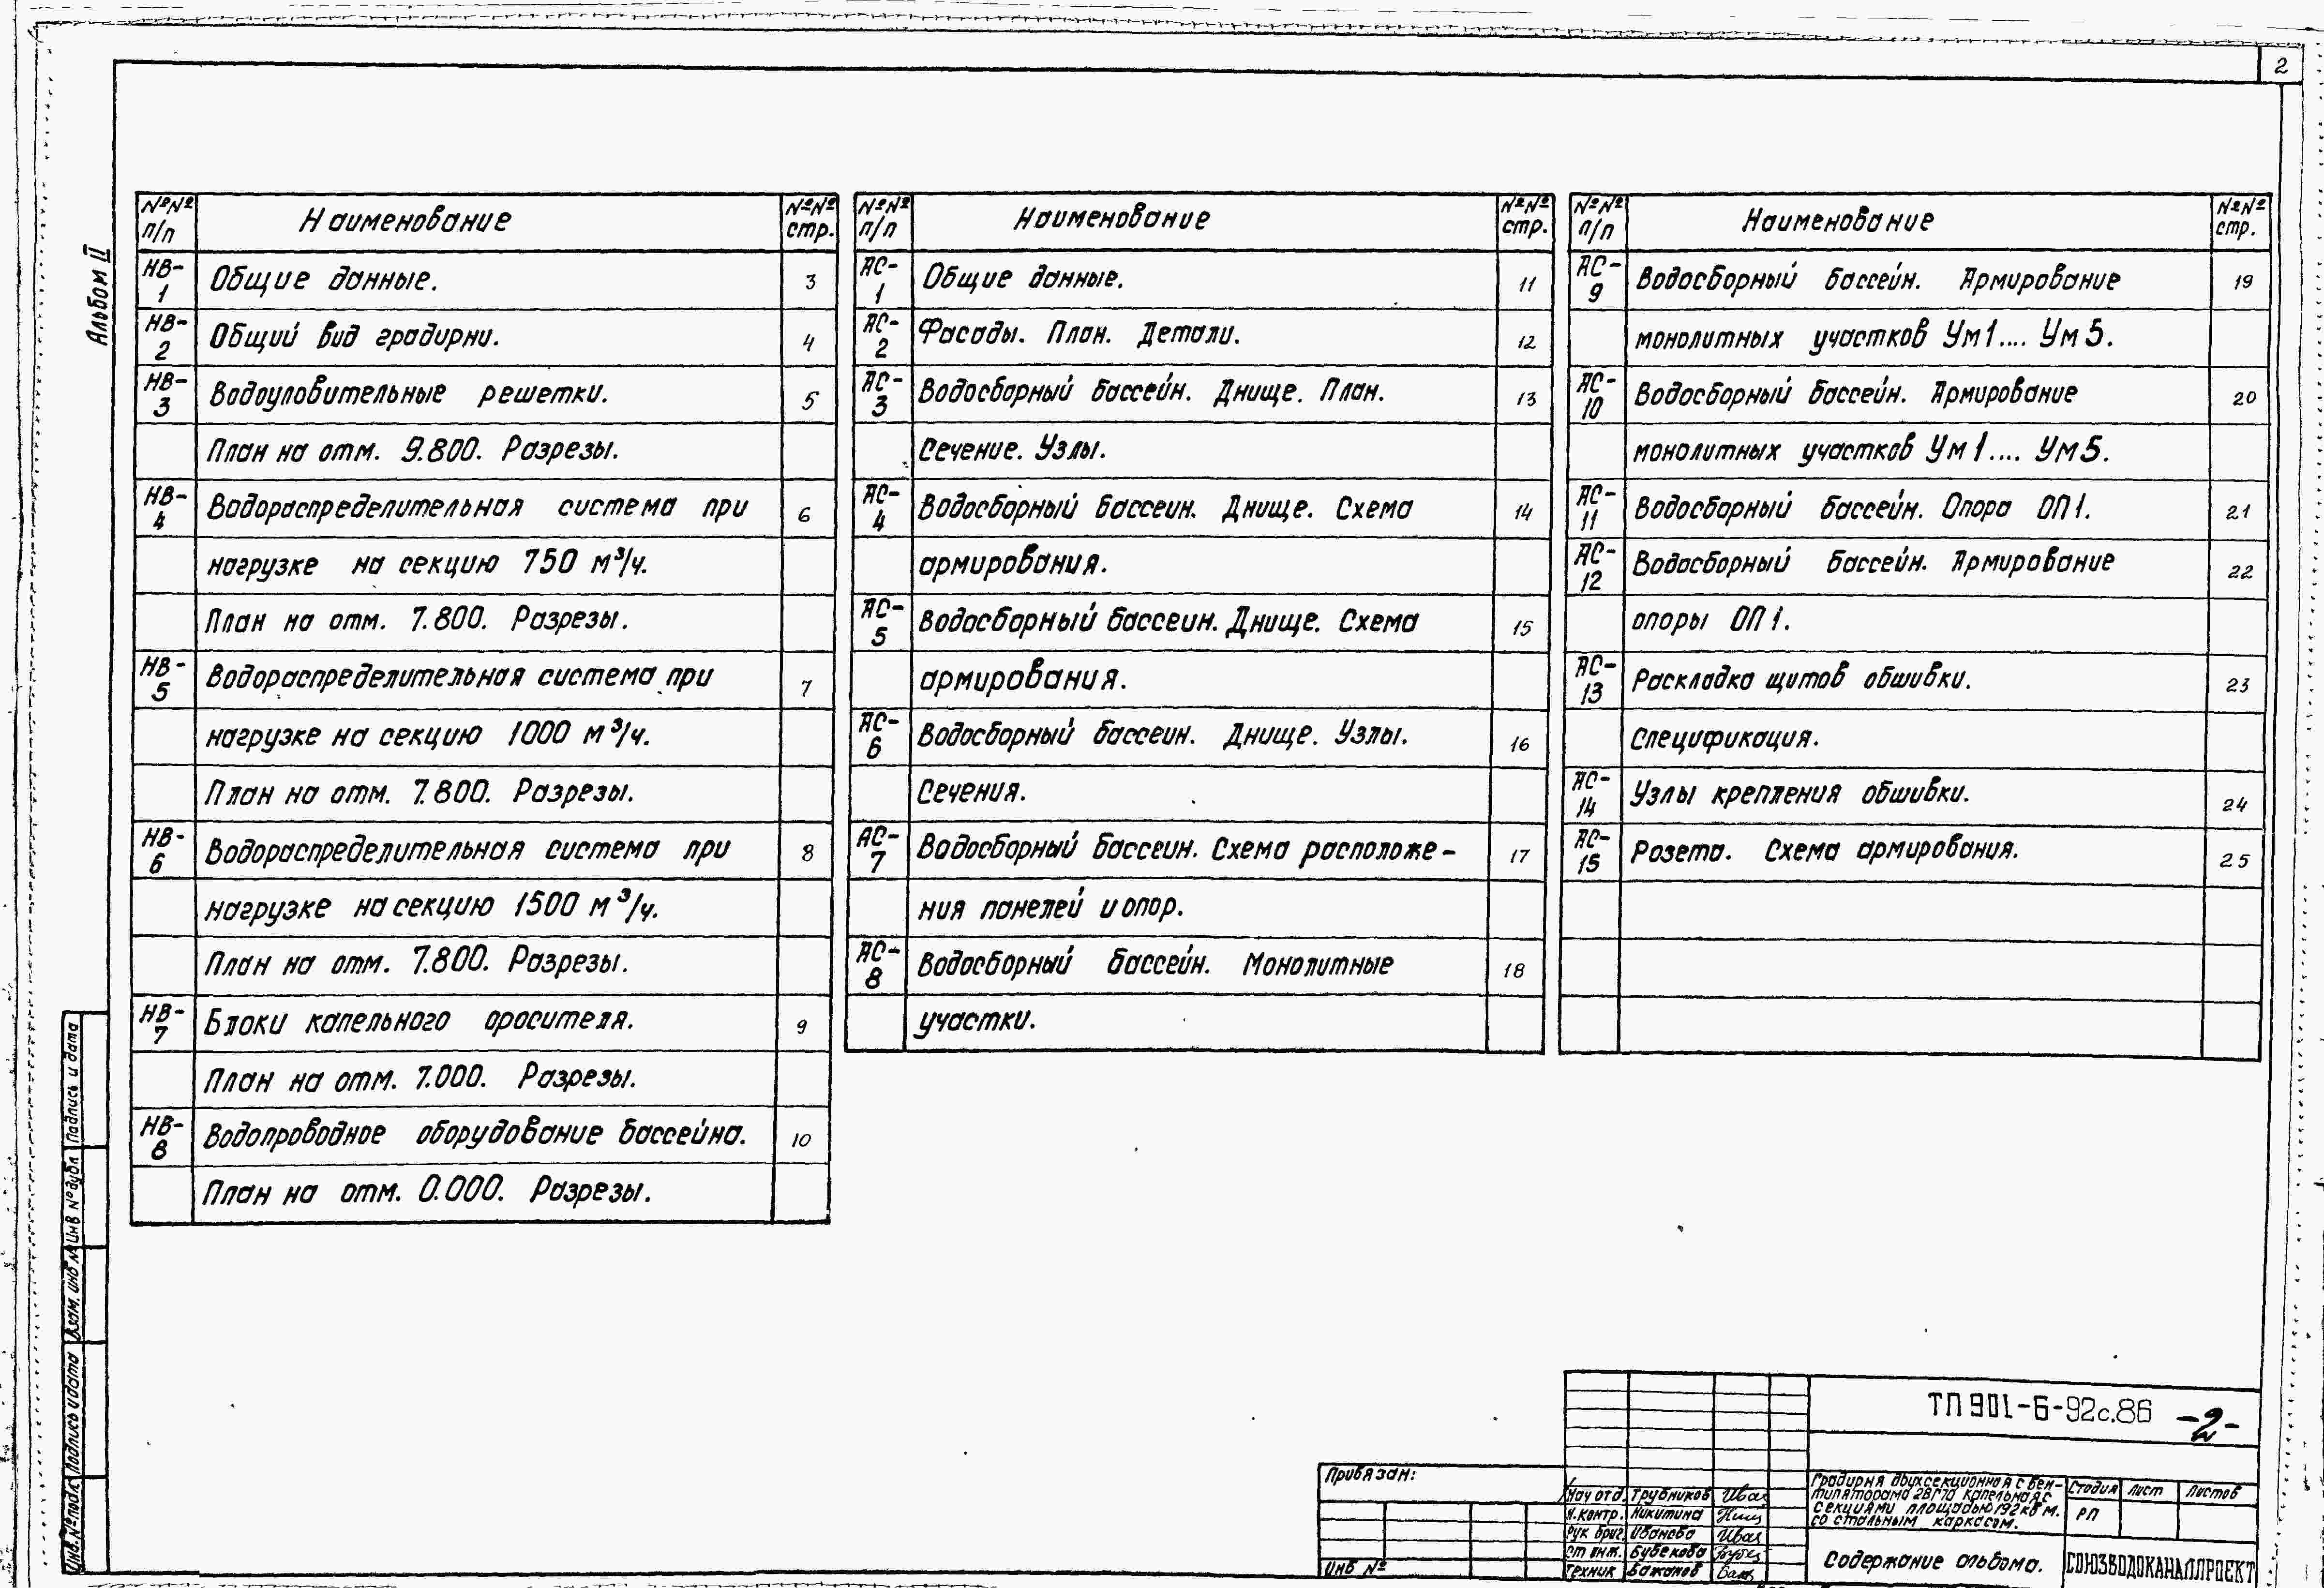 2
Альбом II
№№ п/п Наименование №№ стр.
НВ-1 Общие данные. 3
НВ-2 Общий вид градирни. 4
НВ-3 Водоуловительные решетки. 5
План на отм. 9.800. Разрезы.
НВ-4 Водораспределительная система при 6
нагрузке на секцию 750 м³/ч.
План на отм. 7.800. Разрезы.
НВ-5 Водораспределительная система при 7
нагрузке на секцию 1000 м³/ч.
План на отм. 7.800. Разрезы.
НВ-6 Водораспределительная система при 8
нагрузке на секцию 1500 м³/ч.
План на отм. 7.800. Разрезы.
НВ-7 Блоки капельного оросителя. 9
План на отм. 7.000. Разрезы.
НВ-8 Водопроводное оборудование бассейна. 10
План на отм. 0.000. Разрезы.
№№ п/п Наименование №№ стр.
АС-1 Общие данные. 11
АС-2 Фасады. План. Детали. 12
АС-3 Водосборный бассейн. Днище. План. 13
Сечение. Узлы.
АС-4 Водосборный бассеин. Днище. Схема 14
армирования.
АС-5 Водосборный бассеин. Днище. Схема 15
армирования.
АС-6 Водосборный бассеин. Днище. Узлы. 16
Сечения.
АС-7 Водосборный бассеин. Схема расположе- 17
ния панелей и опор.
АС-8 Водосборный бассейн. Монолитные 18
участки.
№№ п/п Наименование №№ стр.
АС-9 Водосборный бассейн. Армирование 19
монолитных участков Ум1.... Ум5.
АС-10 Водосборный бассейн. Армирование 20
монолитных участков Ум1.... Ум5.
АС-11 Водосборный бассейн. Опора ОП1. 21
АС-12 Водосборный бассейн. Армирование 22
опоры ОП1.
АС-13 Раскладка щитов обшивки. 23
Спецификация.
АС-14 Узлы крепления обшивки. 24
АС-15 Розета. Схема армирования. 25
Подпись и дата
Инв № дубл
Взам. инв №
Подпись и дата
Инв. № подл.
ТП 901-6-92с.86 -2-
Привязан:
Инв №
Нач отд. Трубников
Н.контр. Никитина
Рук бриг. Иванова
Ст инж. Бубекова
Техник Бажанов
Градирня двухсекционная с вен-
тиляторами 2ВГ70 капельная с
секциями площадью 192 кв м.
со стальным каркасом.
Стадия Лист Листов
РП
Содержание альбома.
СОЮЗВОДОКАНАЛПРОЕКТ